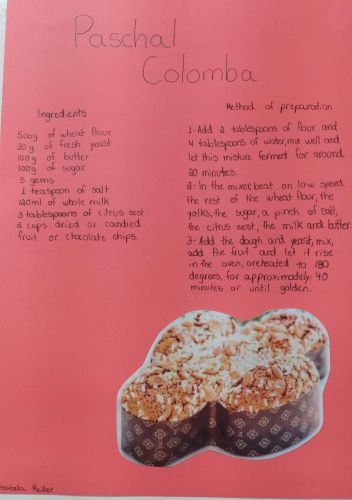 Paschal
Colomba
Ingredients
500g of wheat flour
30g of fresh yeast
100g of butter
100g of sugar
5 gems
1 teaspoon of salt
120ml of whole milk
3 tablespoons of citrus zest
2 cups dried or candied
fruit or chocolate chips.
Method of preparation
1-Add 2 tablespoons of flour and
4 tablespoons of water, mix well and
let this mixture ferment for around
20 minutes.
2-In the mixer, beat on low speed
the rest of the wheat flour, the
yolks, the sugar, a pinch of salt,
the citrus zest, the milk and butter.
3-Add the dough and yeast, mix,
add the fruit and let it rise
in the oven, preheated to 180
degrees, for approximately 40
minutes or until golden.